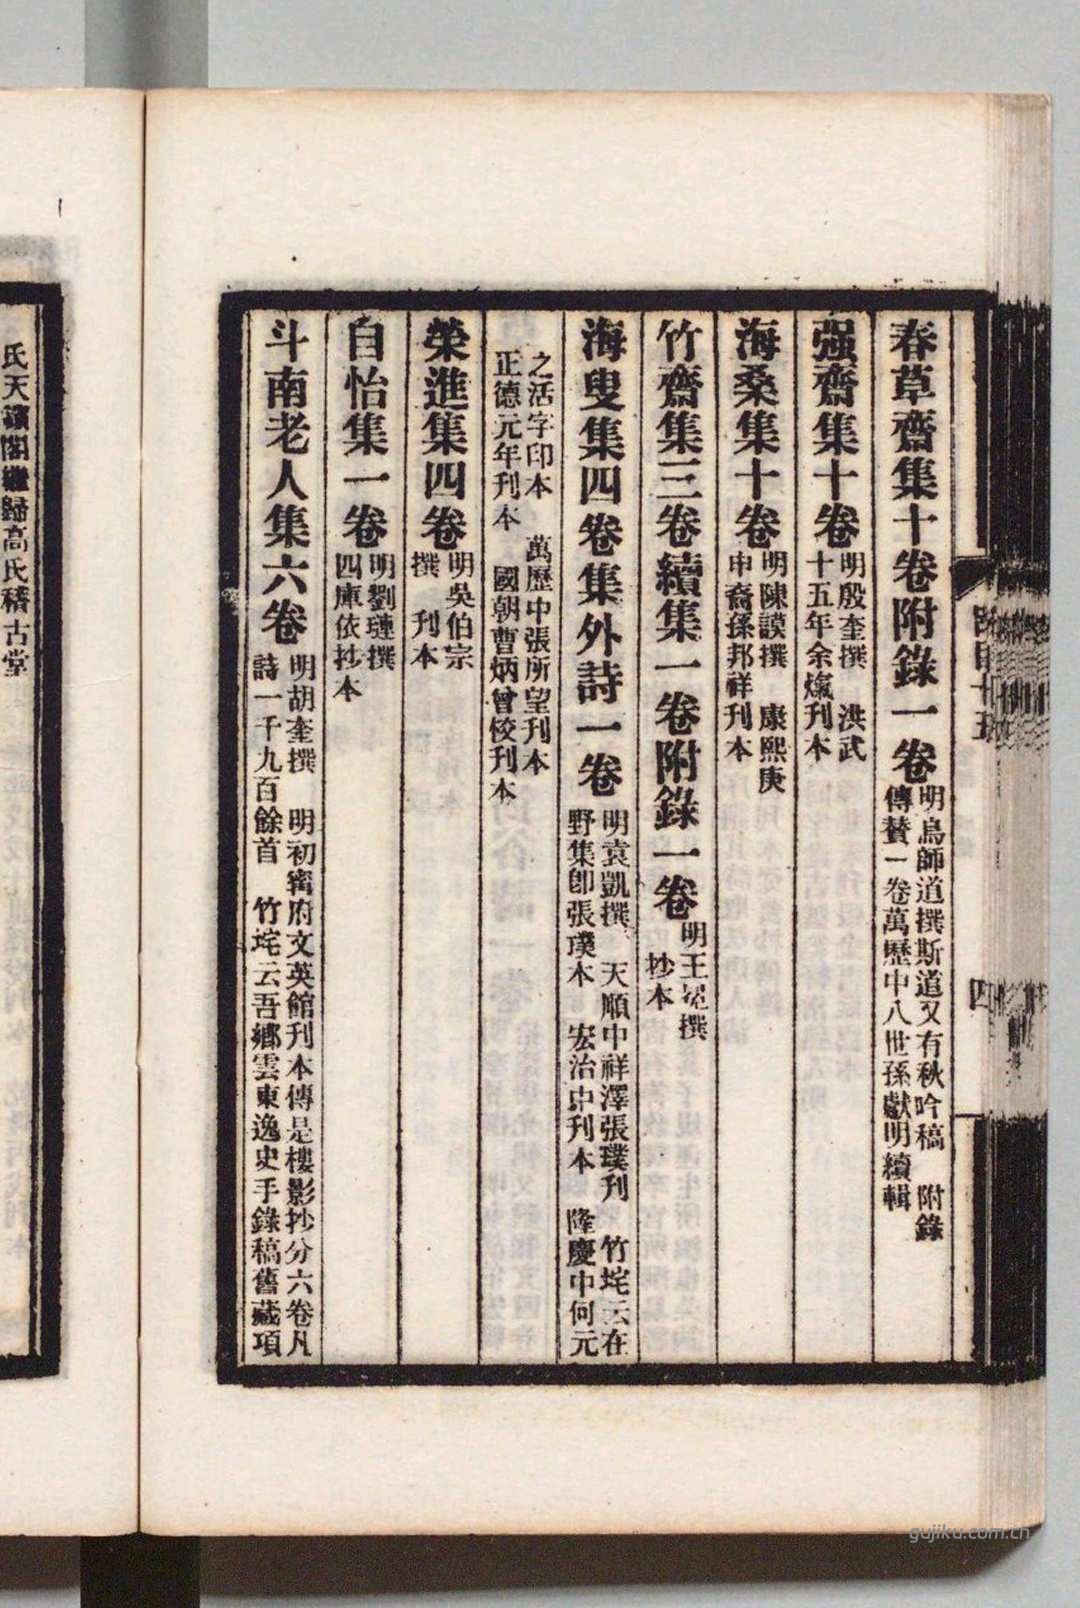 春草齋集十卷附錄一卷
明烏師道撰斯道又有秋吟稿　附錄
傳贊一卷萬歷中八世孫獻明續輯
强齋集十卷
明殷奎撰　洪武
十五年余熂刊本
海桑集十卷
明陳謨撰　康熙庚
申裔孫邦祥刊本
竹齋集三卷續集一卷附錄一卷
明王冕撰
抄本
海叟集四卷集外詩一卷
明袁凱撰　天順中祥澤張璞刊　竹垞云在
野集卽張璞本　宏治中刊本　隆慶中何元
之活字印本　萬歷中張所望刊本
正德元年刊本　國朝曹炳曾校刊本
榮進集四卷
明吳伯宗
撰　刊本
自怡集一卷
明劉璉撰
四庫依抄本
斗南老人集六卷
明胡奎撰　明初甯府文英館刊本傳是樓影抄分六卷凡
詩一千九百餘首　竹垞云吾鄉雲東逸史手錄稿舊藏項
氏天籟閣繼歸高氏稽古堂
四
gujiku.com.cn